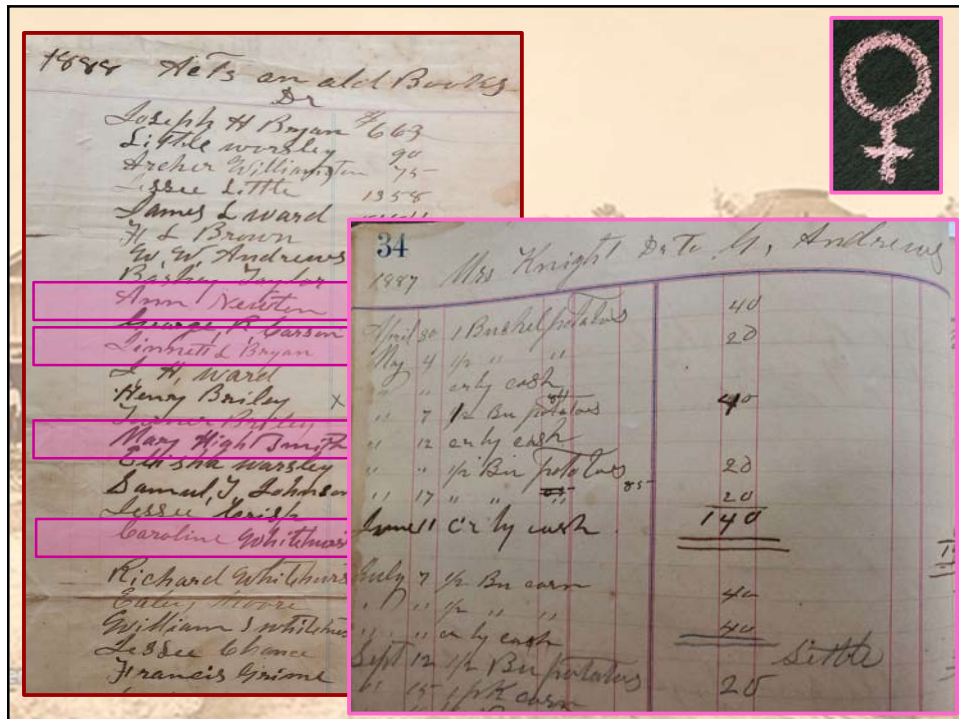 1888 Acts on old Books
Dr
Joseph H Bryan $663
Little worsley 90
Archer Williamston 75
Jessee Little 1358
James L ward
H L Brown
W. W. Andrews
Taylor
Ann Newton
George R. Carson
L Bryan
J. H. ward
Henry Briley x
Briley
Mary High Smith
Elisha warsley
Samuel, J, Johnson
Jessee Crisp
Caroline Whitehurs
Richard Whitehurs
Ealey Moore
William J whitehu
Jessee Chance
Francis Grime
34
1887 Mrs Knight Dr to G, Andrews
April 30 1 Bushel potatos 40
May 4 1/2 " " 20
" " cr by cash
" 7 1/2 Bu potatos 40
" 12 cr by cash
" " 1/2 Bu potatos 20
" 17 " " " 85 20
June 11 cr by cash. 140
July 7 1/2 Bu corn 40
" " 1/2 " "
" " cr by cash 40
settle
Sept 12 1/2 Bu potatos 20
" 15 1 pk corn